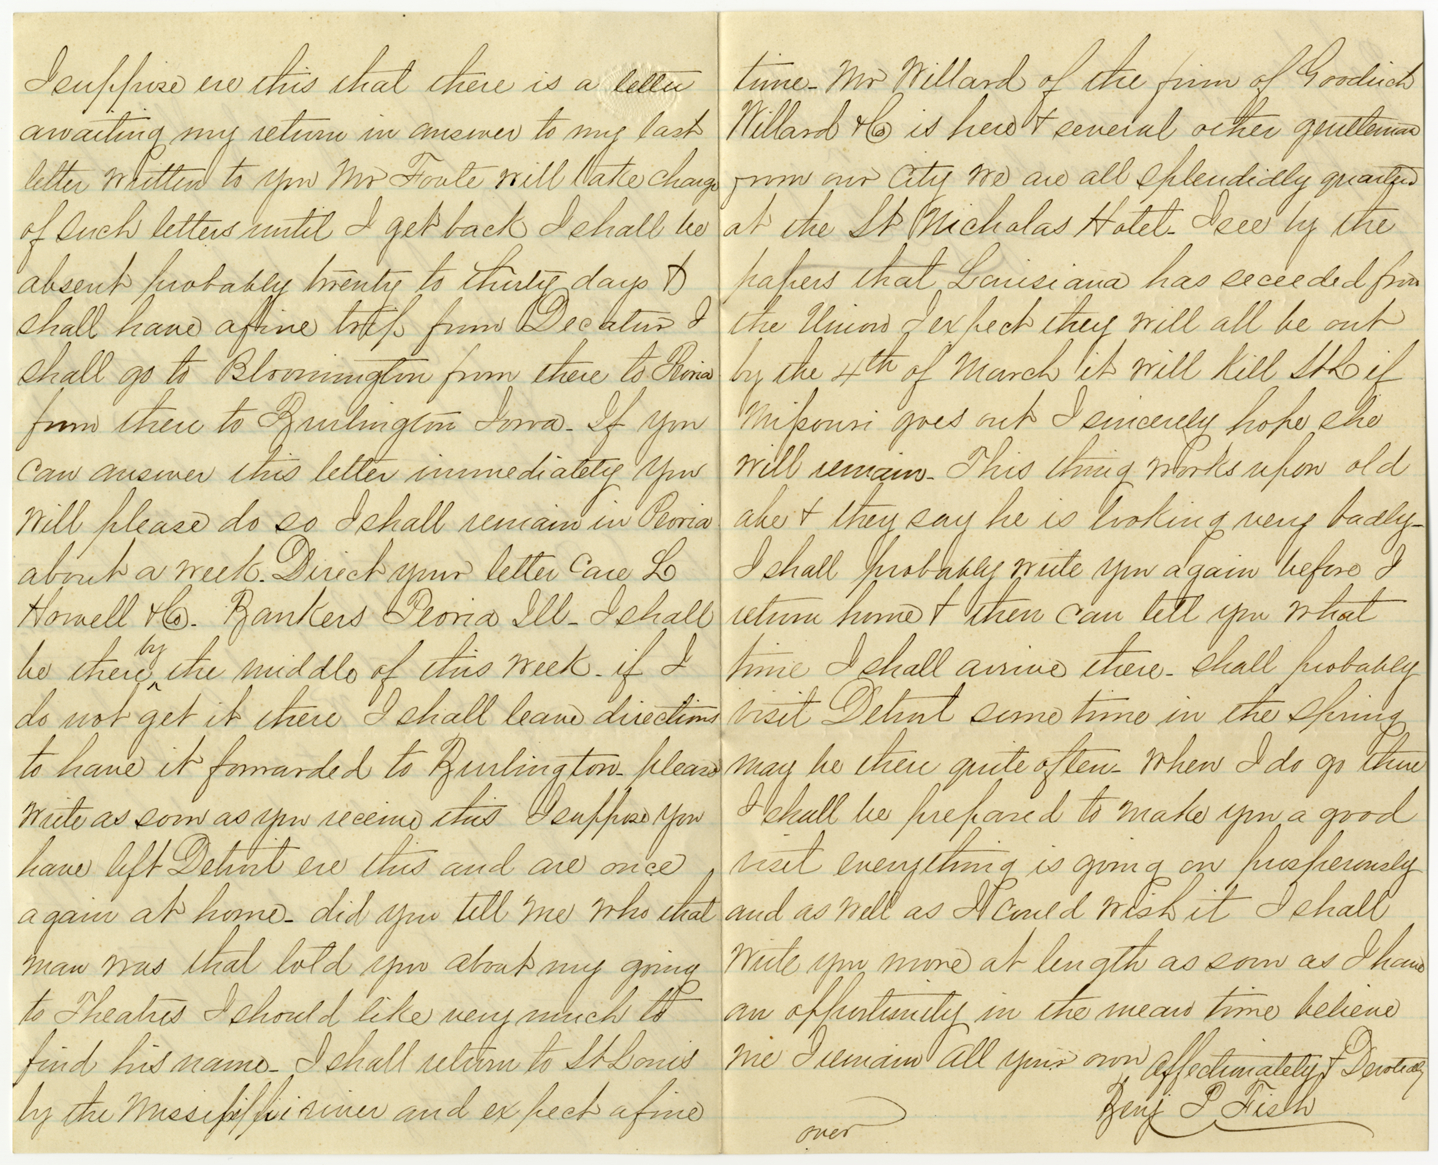 I suppose ere this that there is a letter
awaiting my return in answer to my last
letter written to you Mr Foote will take charge
of such letters until I get back I shall be
absent probably twenty to thirty days &
shall have a fine trip from Decatur I
shall go to Bloomington from there to Peoria
from there to Burlington Iowa - If you
can answer this letter immediately you
will please do so I shall remain in Peoria
about a week. Direct your letter Care L
Howell & Co. Bankers Peoria Ill - I shall
be there by the middle of this week - if I
do not get it there I shall leave directions
to have it forwarded to Burlington - please
write as soon as you receive this I suppose you
have left Detroit ere this and are once
again at home - did you tell me who that
man was that told you about my going
to Theatres I should like very much to
find his name - I shall return to St Louis
by the Mississippi river and expect a fine
time - Mr Willard of the firm of Goodrich
Willard & Co is here & several other gentleman
from our City we are all splendidly quartered
at the St Nicholas Hotel - I see by the
papers that Louisiana has seceeded from
the Union I expect they will all be out
by the 4th of March it will kill St L if
Missouri goes out I sincerely hope she
will remain - This thing works upon old
abe & they say he is looking very badly -
I shall probably write you again before I
return home & then can tell you what
time I shall arrive there - shall probably
visit Detroit some time in the spring
may be there quite often - When I do go there
I shall be prepared to make you a good
visit everything is going on prosperously
and as well as I could wish it I shall
write you more at length as soon as I have
an opportunity in the mean time believe
me I remain all your own affectionately & Devotedly
Benj P Fish
over